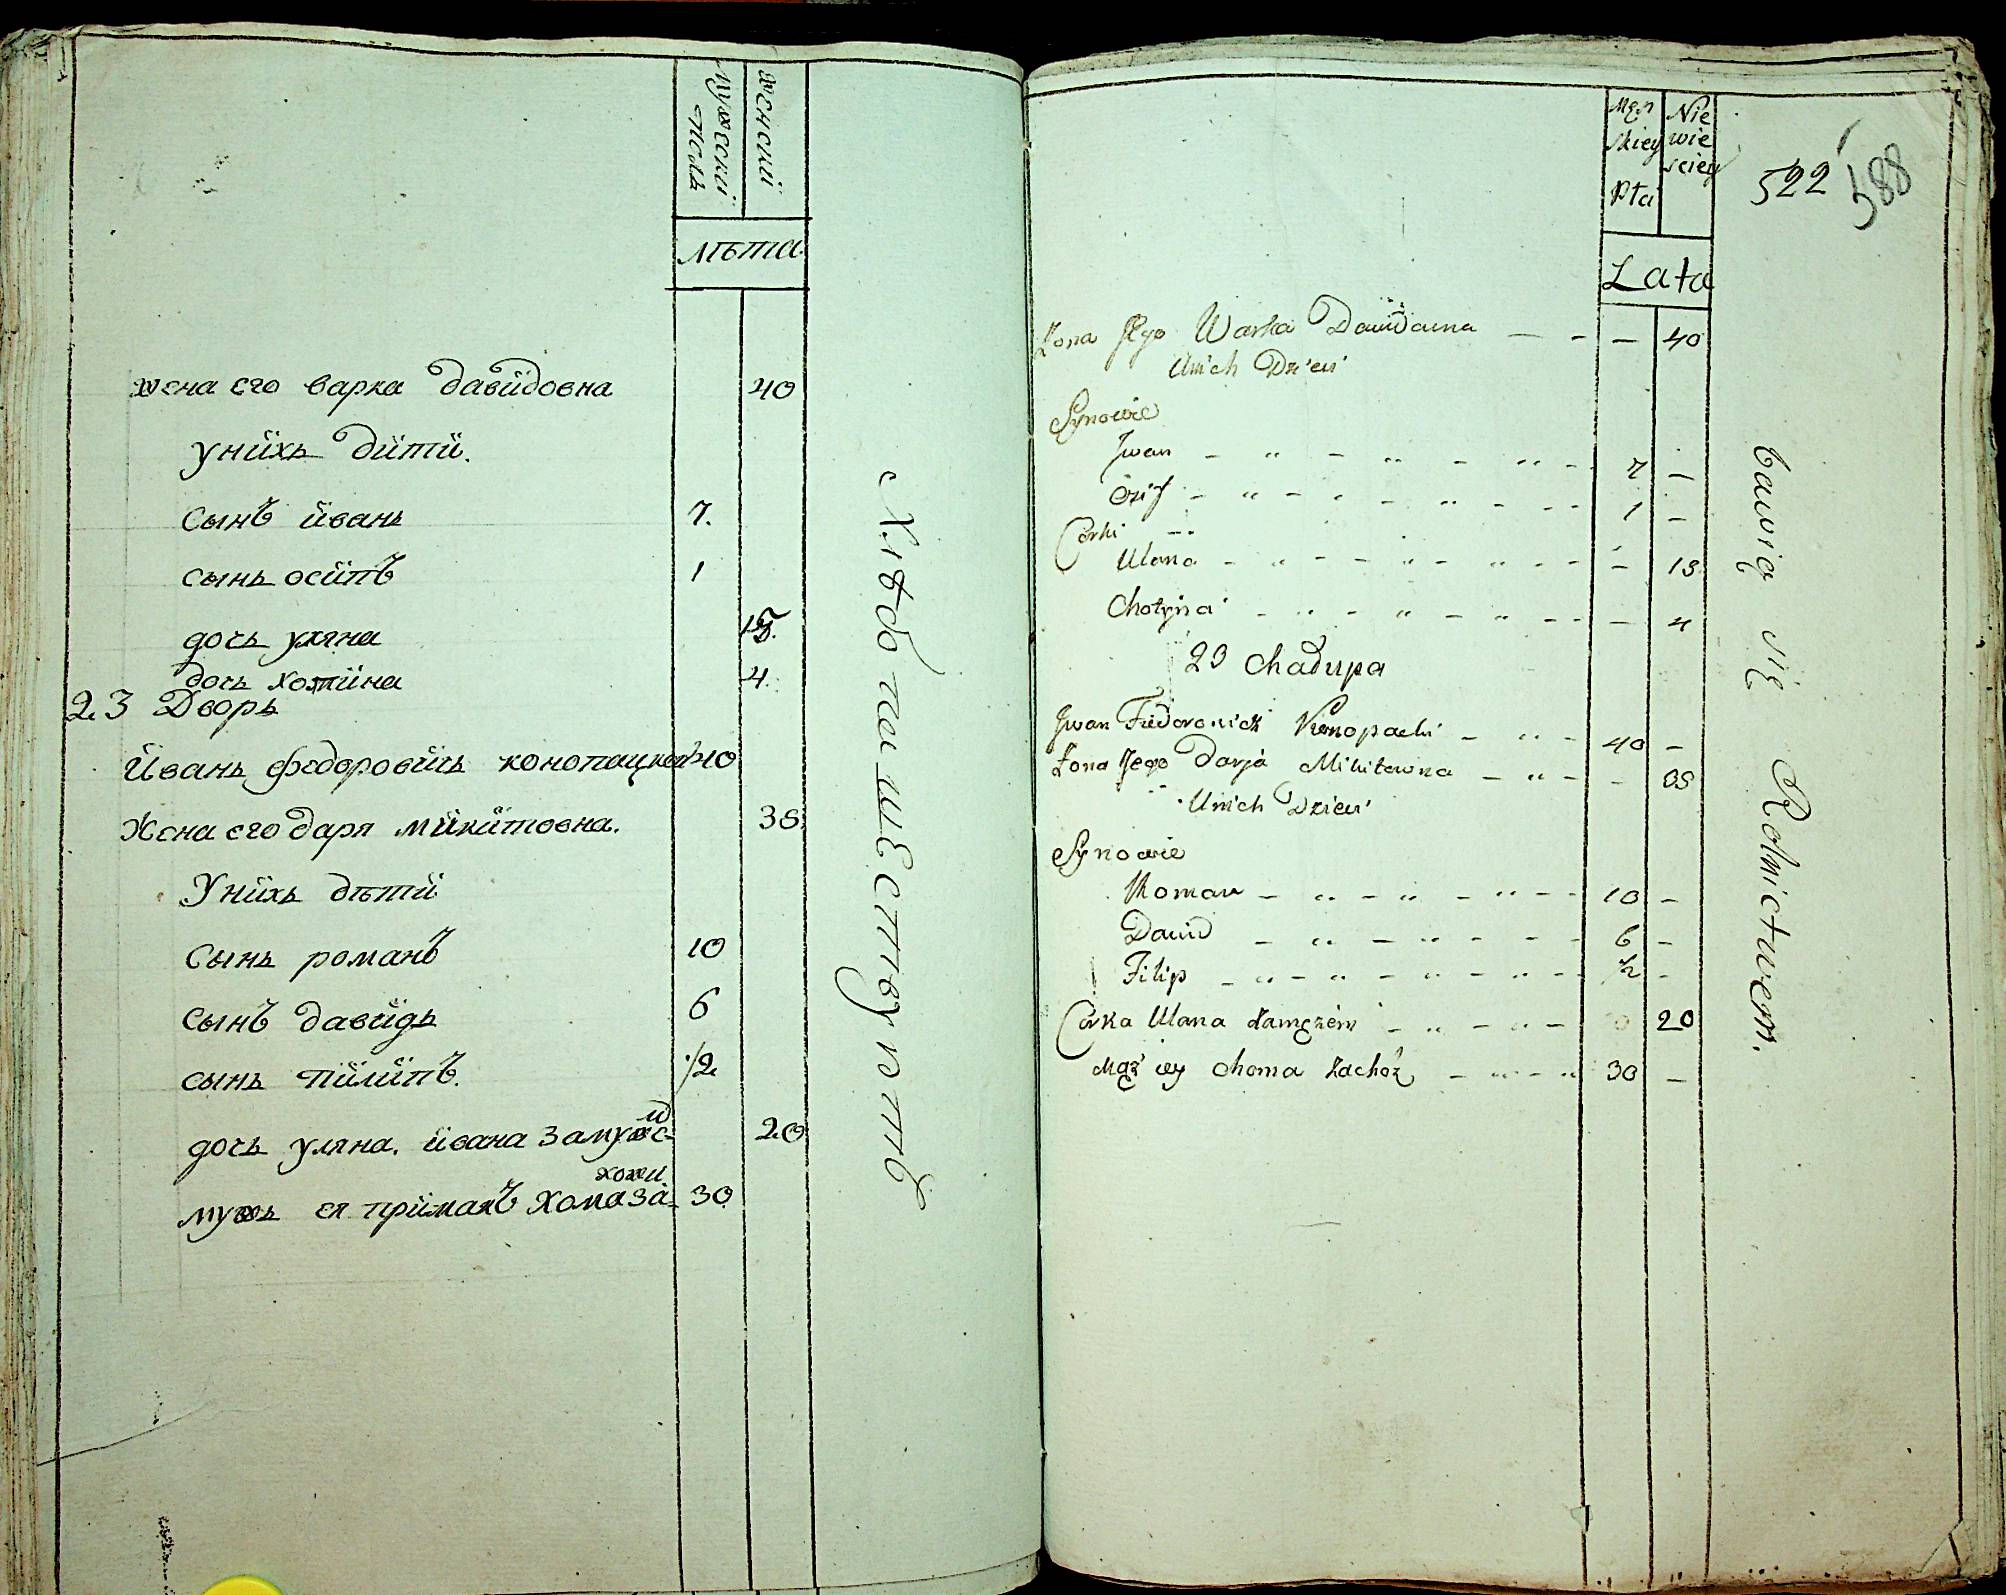 мужеский
женский
полъ
лѣта
жена его варка давїдовна 40
унїхъ дїтї.
сынъ їванъ 7.
сынъ осїпъ 1
дочь уляна
дочь хотїна 4.
23 Дворъ
Їванъ федоровїчь конопацкой 40
Жена его даря мїкїтовна. 35.
Унїхъ дѣтї
Сынъ романъ 10
сынъ давїдъ 6
сынъ пїлїпъ. 1/2
дочь уляна. ївана замужемъ 20
мужъ ея прїмакъ хома за- 30
хлѣбопашествуютъ
Męz Nie
skiey wie
sciey
Płci
Lata
522
588
Zona Jego Warka Dawidowna — - — 40
Unich Dzieci
Synowie
Jwan - „ - „ - „ - 7 —
Ozif - „ - „ - „ - - 1 -
Corki
Ulana - „ - - „ - „ - - - 13
Chotyna - „ - „ - „ - - - 4
23 Chałupa
Jwan Fiedorowicz Konopacki - „ - 40 -
Zona Jego Darja Mikitowna - „ - - 35
Unich Dzieci
Synowie
Roman - „ - „ - „ - - 10 -
Dawid - „ - „ - - - 6 -
Filip - „ - „ - „ - „ - 1/2 -
Corka Ulana zamęzem - „ - „ - 20
Mąz iey Choma - „ - „ 30 -
bawią się Rolnictwem.